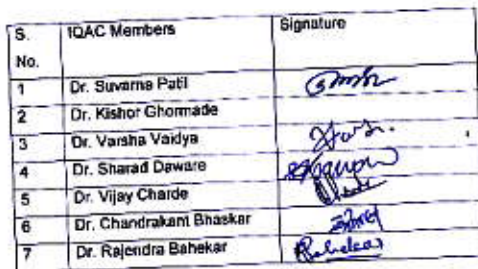 S. No. IQAC Members Signature
1 Dr. Suvarna Patil
2 Dr. Kishor Ghormade
3 Dr. Varsha Vaidya
4 Dr. Sharad Daware
5 Dr. Vijay Charde
6 Dr. Chandrakant Bhaskar
7 Dr. Rajendra Bahekar Rahekar